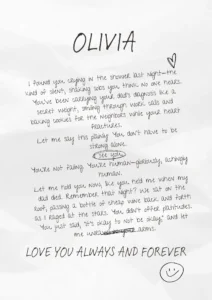 OLIVIA
I found you crying in the shower last night—the
kind of silent, shaking sobs you think no one hears.
You've been carrying your dad's diagnosis like a
secret weight, smiling through work calls and
baking cookies for the neighbors while your heart
fractures.
Let me say this plainly: You don't have to be
strong alone.
I see you.
You're not failing. You're human—gloriously, achingly
human.
Let me hold you now, like you held me when my
dad died. Remember that night? We sat on the
roof, passing a bottle of cheap wine back and forth
as I raged at the stars. You didn't offer platitudes.
You just said, "It's okay to not be okay," and let
me
arms.
LOVE YOU ALWAYS AND FOREVER